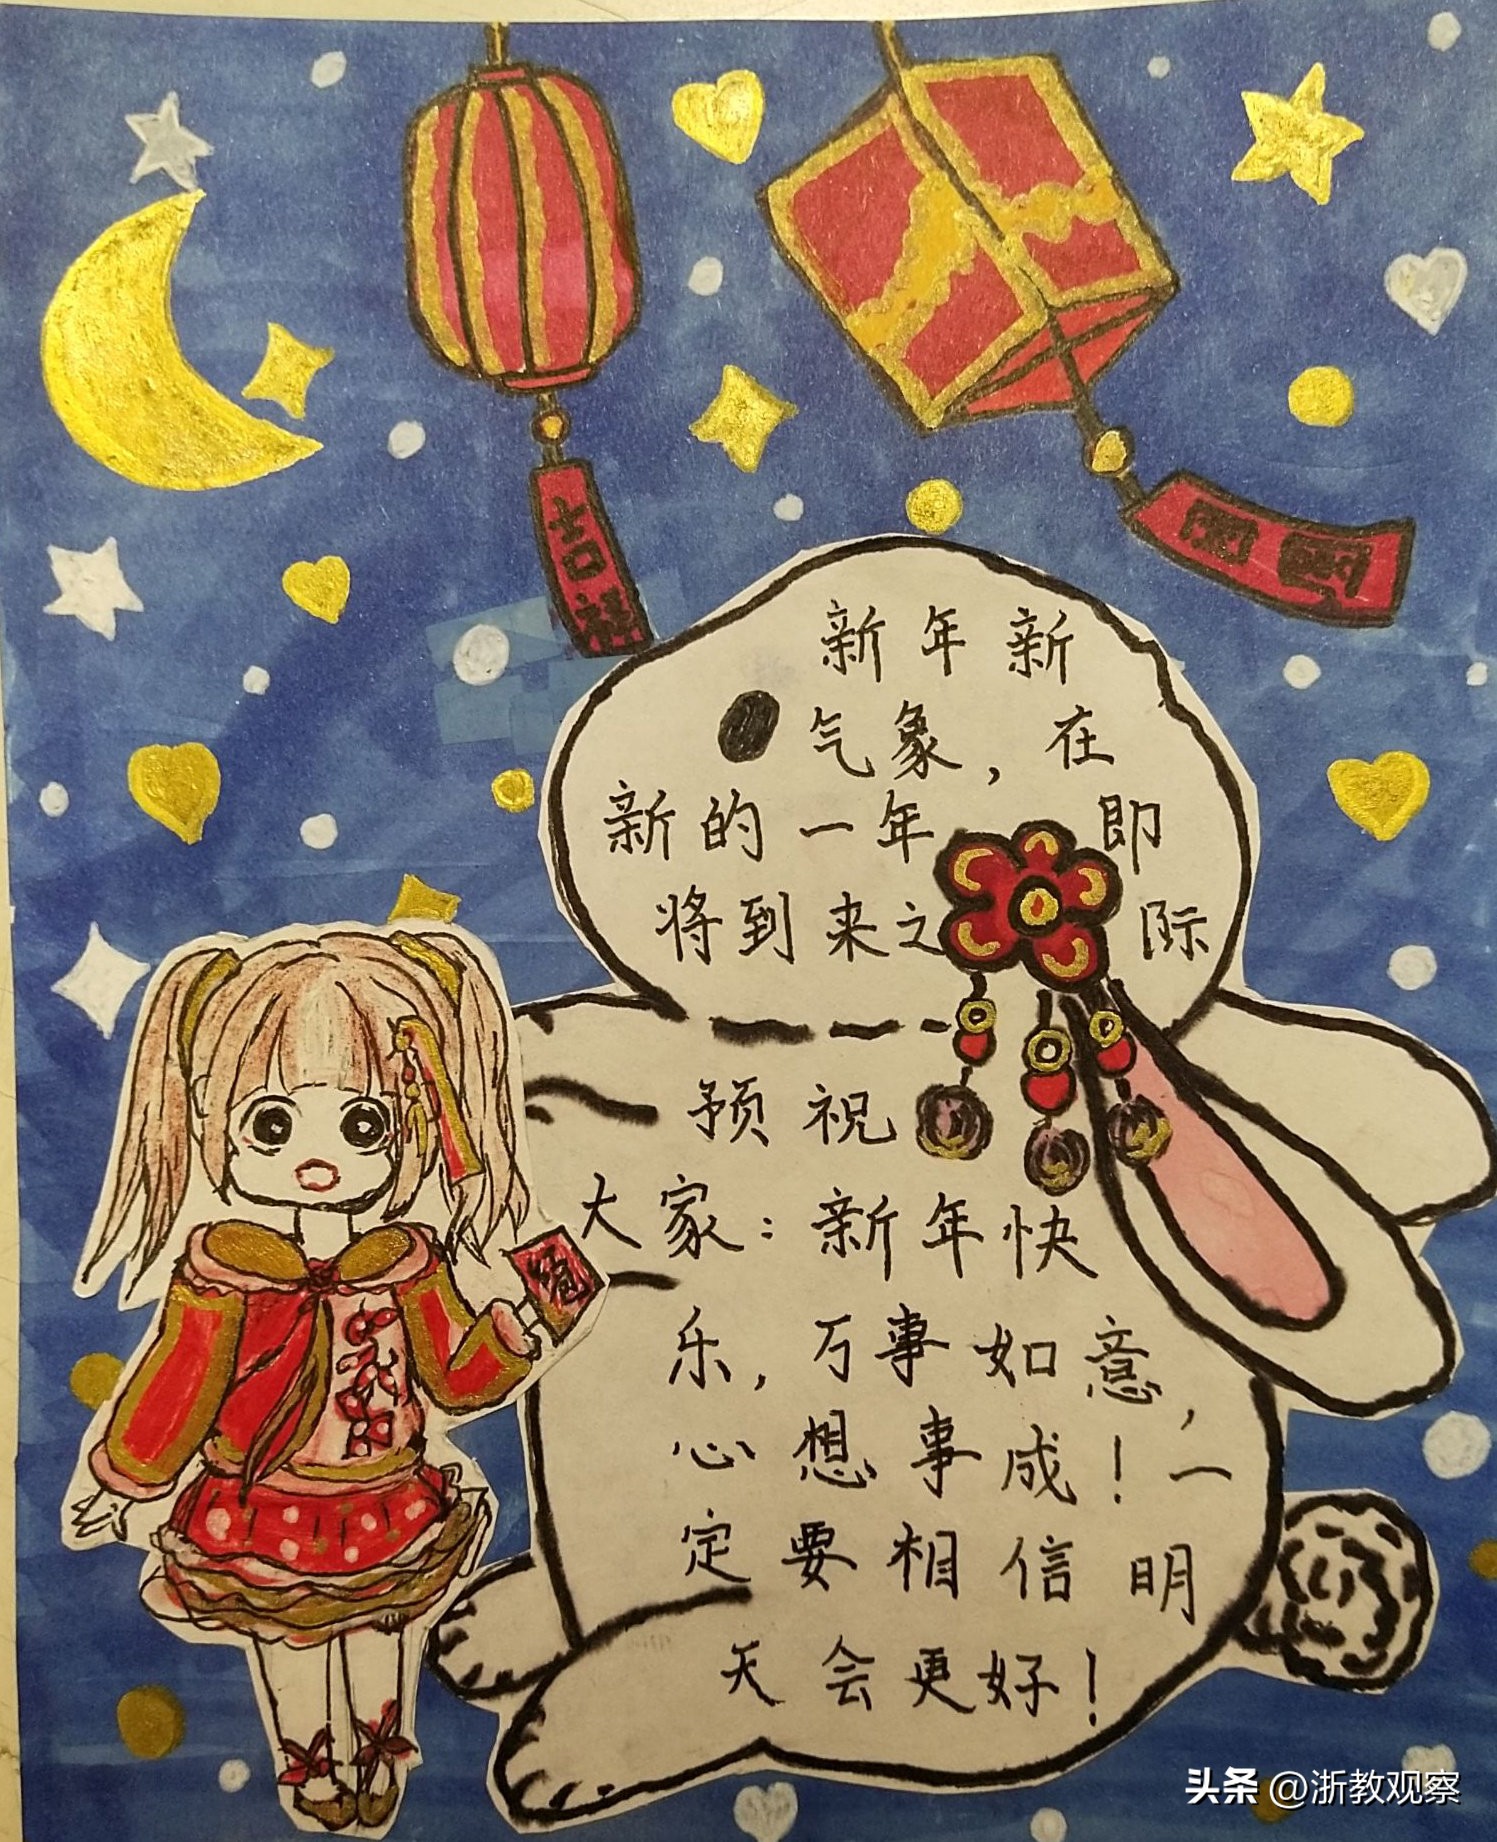 吉祥
新年新
气象，在
新的一年 即
将到来之 际
预祝
大家：新年快
乐，万事如意，
心想事成！一
定要相信明
天会更好！
头条 @浙教观察